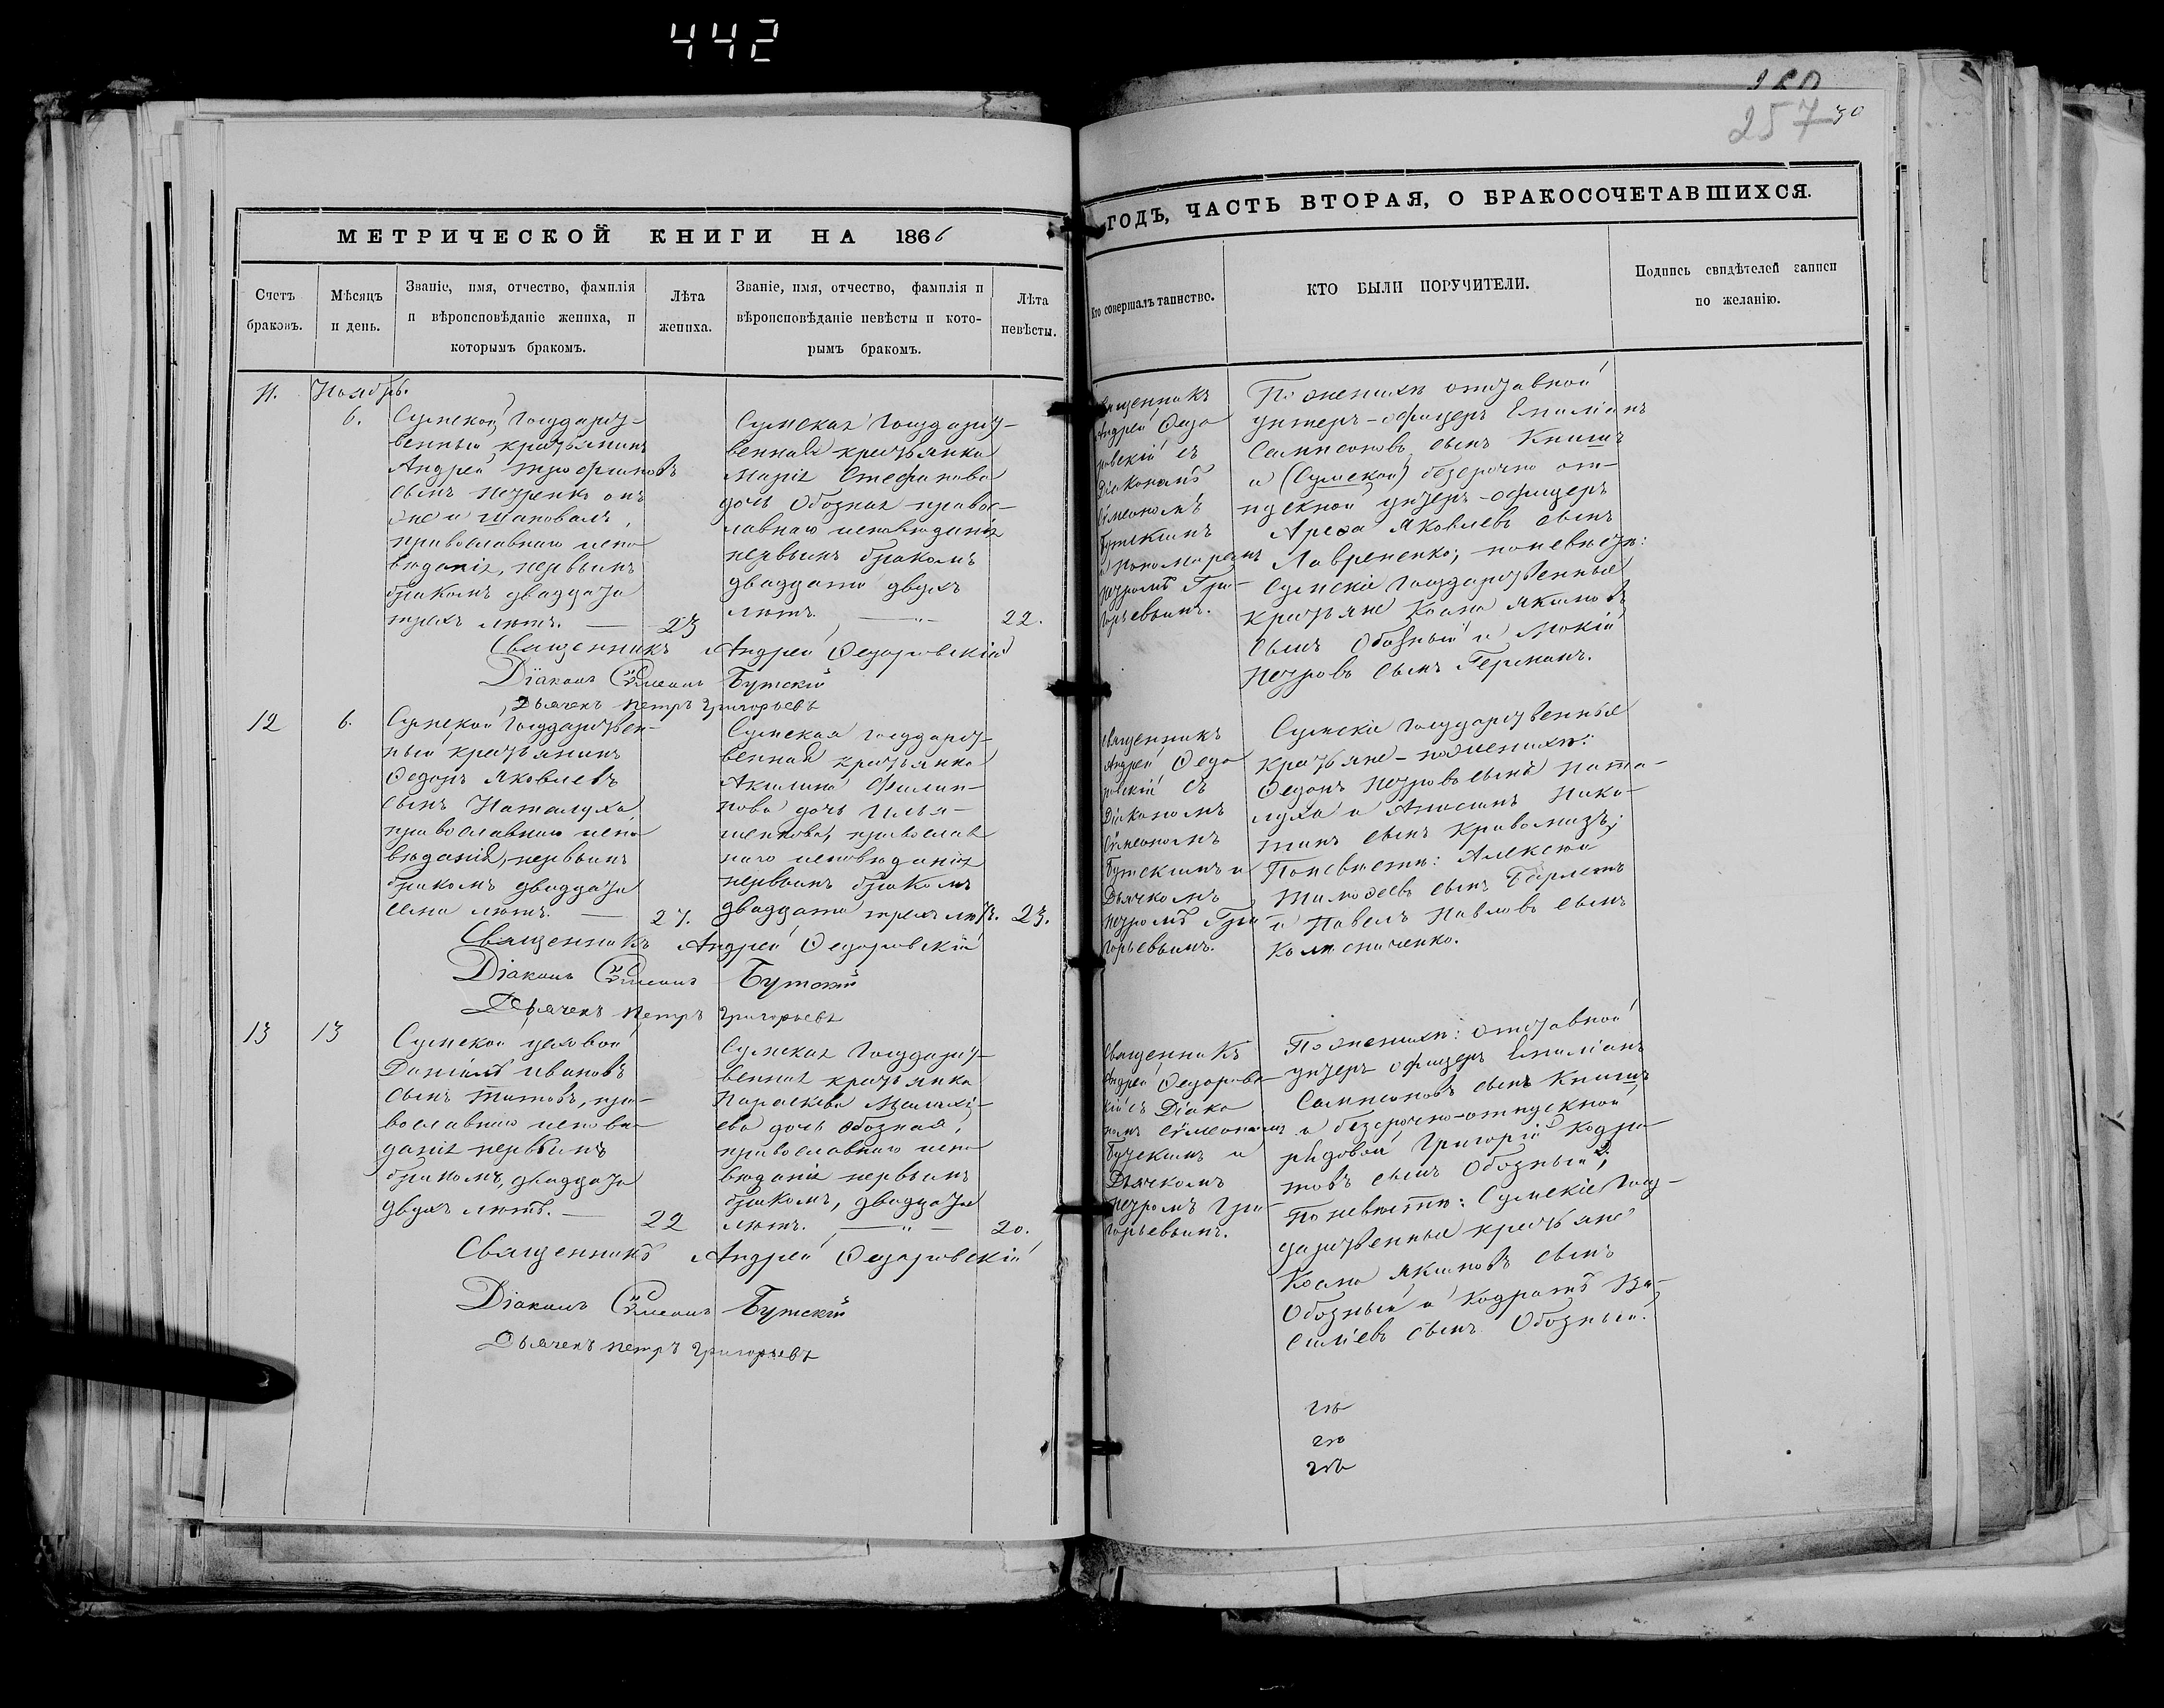 442
257 30
МЕТРИЧЕСКОЙ КНИГИ НА 1866
ГОДЪ, ЧАСТЬ ВТОРАЯ, О БРАКОСОЧЕТАВШИХСЯ.
Счетъ
браковъ.
Мѣсяцъ
и день.
Званіе, имя, отчество, фамилія
и вѣроисповѣданіе жениха, и
которымъ бракомъ.
Лѣта
жениха.
Званіе, имя, отчество, фамилія и
вѣроисповѣданіе невѣсты и кото-
рымъ бракомъ.
Лѣта
невѣсты.
Кто совершалъ таинство.
КТО БЫЛИ ПОРУЧИТЕЛИ.
Подпись свидѣтелей записи
по желанію.
11.
Ноябрь.
6.
Сумской Государст-
венный крестьянинъ
Андрей
сынъ Петренко онъ
же и Шаповалъ,
православнаго испо
вѣданія, первымъ
бракомъ двадцати
трехъ лѣтъ. — 23
Сумская Государст-
венная крестьянка
Марія Стефанова
дочь Обозная правос-
лавнаго исповѣданія
первымъ бракомъ
двадцати двухъ
лѣтъ. — 22.
Священникъ
Андрей Ѳедо
ровскій съ
Діакономъ
Сѵмеономъ
Бутскимъ
и Пономаремъ
Петромъ Гри-
горьевымъ.
По женихѣ отставной
унтеръ-офицеръ Емиліанъ
Сампсоновъ сынъ Книшъ
и (Сумской) безсрочно от-
пускной унтеръ-офицеръ
Яковлевъ сынъ
Лавриненко; по невѣстѣ:
Сумскіе Государственные
крестьяне Козма Якимовъ
сынъ Обозный и Мокій
Петровъ сынъ Германъ.
Священникъ Андрей Ѳедоровскій
Діаконъ Сѵмеонъ Бутскій
Дьячекъ Петръ Григорьевъ
12
6.
Сумской Государствен-
ный крестьянинъ
Ѳедоръ Яковлевъ
сынъ Наталуха
православнаго испо
вѣданія, первымъ
бракомъ двадцати
семи лѣтъ. — 27.
Сумская Государст-
венная крестьянка
Акилина Филип-
пова дочь Илья-
шенкова, православ
наго исповѣданія
первымъ бракомъ
двадцати трехъ лѣтъ. 23.
Священникъ
Андрей Ѳедо
ровскій съ
Діакономъ
Сѵмеономъ
Бутскимъ и
Дьячкомъ
Петромъ Гри
горьевымъ.
Сумскіе Государственные
крестьяне – по женихѣ:
Ѳедоръ Петровъ сынъ Ната-
луха и Ники-
тинъ сынъ
По невѣстѣ: Алексѣй
Тимоѳеевъ сынъ
и Павелъ Павловъ сынъ
Колесниченко.
Священникъ Андрей Ѳедоровскій
Діаконъ Сѵмеонъ Бутскій
Дьячекъ Петръ Григорьевъ
13
13
Сумской
Даніилъ Ивановъ
сынъ Титовъ, пра-
вославнаго исповѣ-
данія первымъ
бракомъ, двадцати
двухъ лѣтъ. — 22
Сумская Государст-
венная крестьянка
Параскева Малахі-
ева дочь Обозная,
православнаго испо
вѣданія первымъ
бракомъ, двадцати
лѣтъ. — 20.
Священникъ
Андрей Ѳедоровс-
кій съ Діако
номъ Сѵмеономъ
Бутскимъ и
Дьячкомъ
Петромъ Гри-
горьевымъ.
По женихѣ: отставной
унтеръ-офицеръ Емиліанъ
Сампсоновъ сынъ Книшъ
и безсрочно-отпускной
рядовой Григорій Кодра-
товъ сынъ Обозный;
По невѣстѣ: Сумскіе Госу-
дарственные крестьяне
Козма Якимовъ сынъ
Обозный и Кодратъ Ва-
силіевъ сынъ Обозный.
Священникъ Андрей Ѳедоровскій
Діаконъ Сѵмеонъ Бутскій
Дьячекъ Петръ Григорьевъ